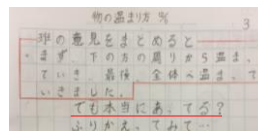 物の温まり方 %
3
班の意見をまとめると
まず、下の方の周りから温ま、
ていき、最後、全体へ温ま、て
いきました。
でも本当にあ、てる?
ふりかえ、てみて…